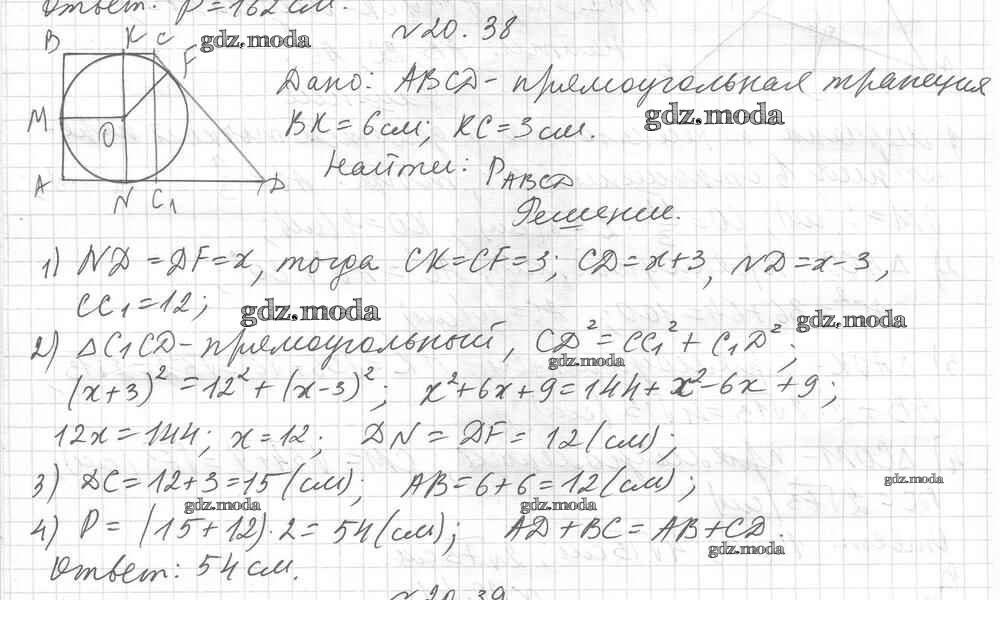 Ответ: P = 162 см.
№20.38
B K C F
M O
A N C₁ D
Дано: ABCD - прямоугольная трапеция
BK = 6 см; KC = 3 см.
Найти: P_ABCD
Решение.
1) ND = DF = x, тогда CK = CF = 3; CD = x+3, ND = x-3,
CC₁ = 12;
2) △C₁CD - прямоугольный, CD² = CC₁² + C₁D²;
(x+3)² = 12² + (x-3)²; x²+6x+9 = 144 + x²-6x+9;
12x = 144; x = 12; DN = DF = 12 (см);
3) DC = 12+3 = 15 (см); AB = 6+6 = 12 (см);
4) P = (15+12)·2 = 54 (см); AD + BC = AB + CD.
Ответ: 54 см.
№20.39
gdz.moda
gdz.moda
gdz.moda
gdz.moda
gdz.moda
gdz.moda
gdz.moda
gdz.moda
gdz.moda